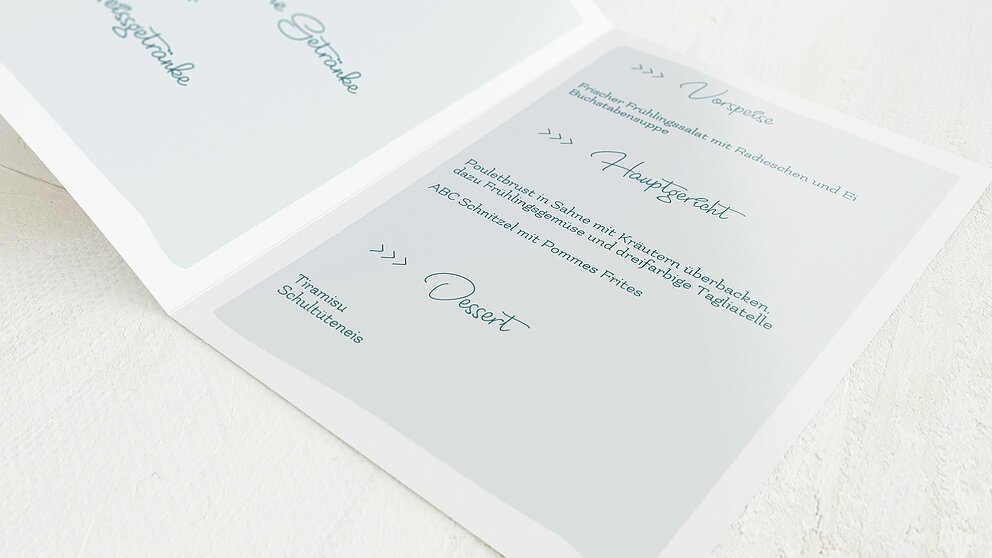 Getränke
>>> Vorspeise
Frischer Frühlingssalat mit Radieschen und Ei
Buchstabensuppe
>>> Hauptgericht
Pouletbrust in Sahne mit Kräutern überbacken,
dazu Frühlingsgemüse und dreifarbige Tagliatelle
ABC Schnitzel mit Pommes Frites
>>> Dessert
Tiramisu
Schultüteneis